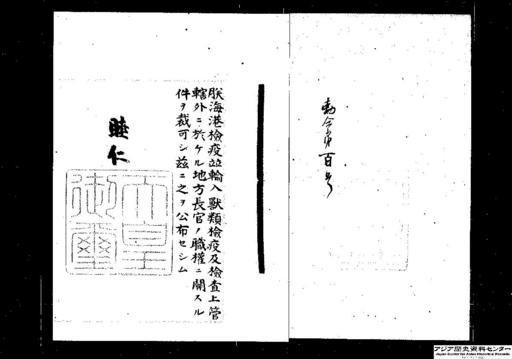 勅令第百号
朕海港檢疫竝輸入獸類檢疫及檢査上管
轄外ニ於ケル地方長官ノ職權ニ關スル
件ヲ裁可シ茲ニ之ヲ公布セシム
睦仁
天皇御璽
アジア歴史資料センター
Japan Center for Asian Historical Records